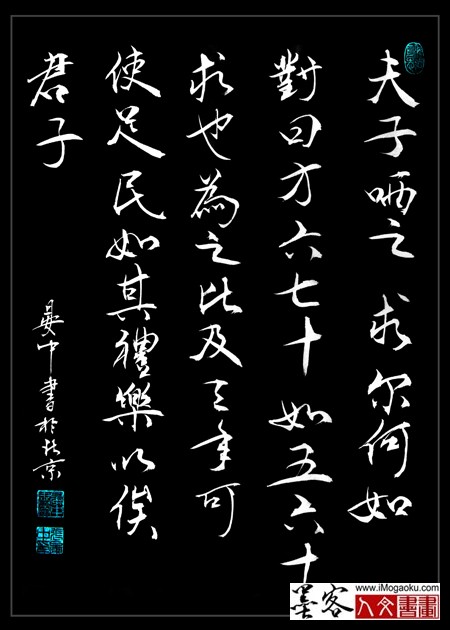 夫子哂之 求尔何如
對曰方六七十 如五六十
求也為之比及三年可
使足民如其禮樂以俟
君子
晏中書於北京
www.iMogaoku.com
墨客人文書畫